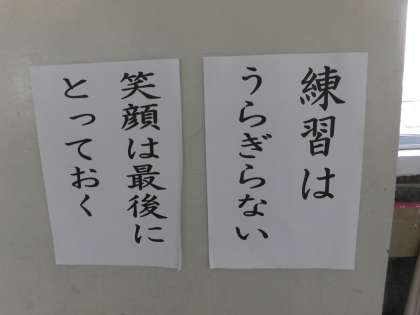 練習は
うらぎらない
笑顔は最後に
とっておく